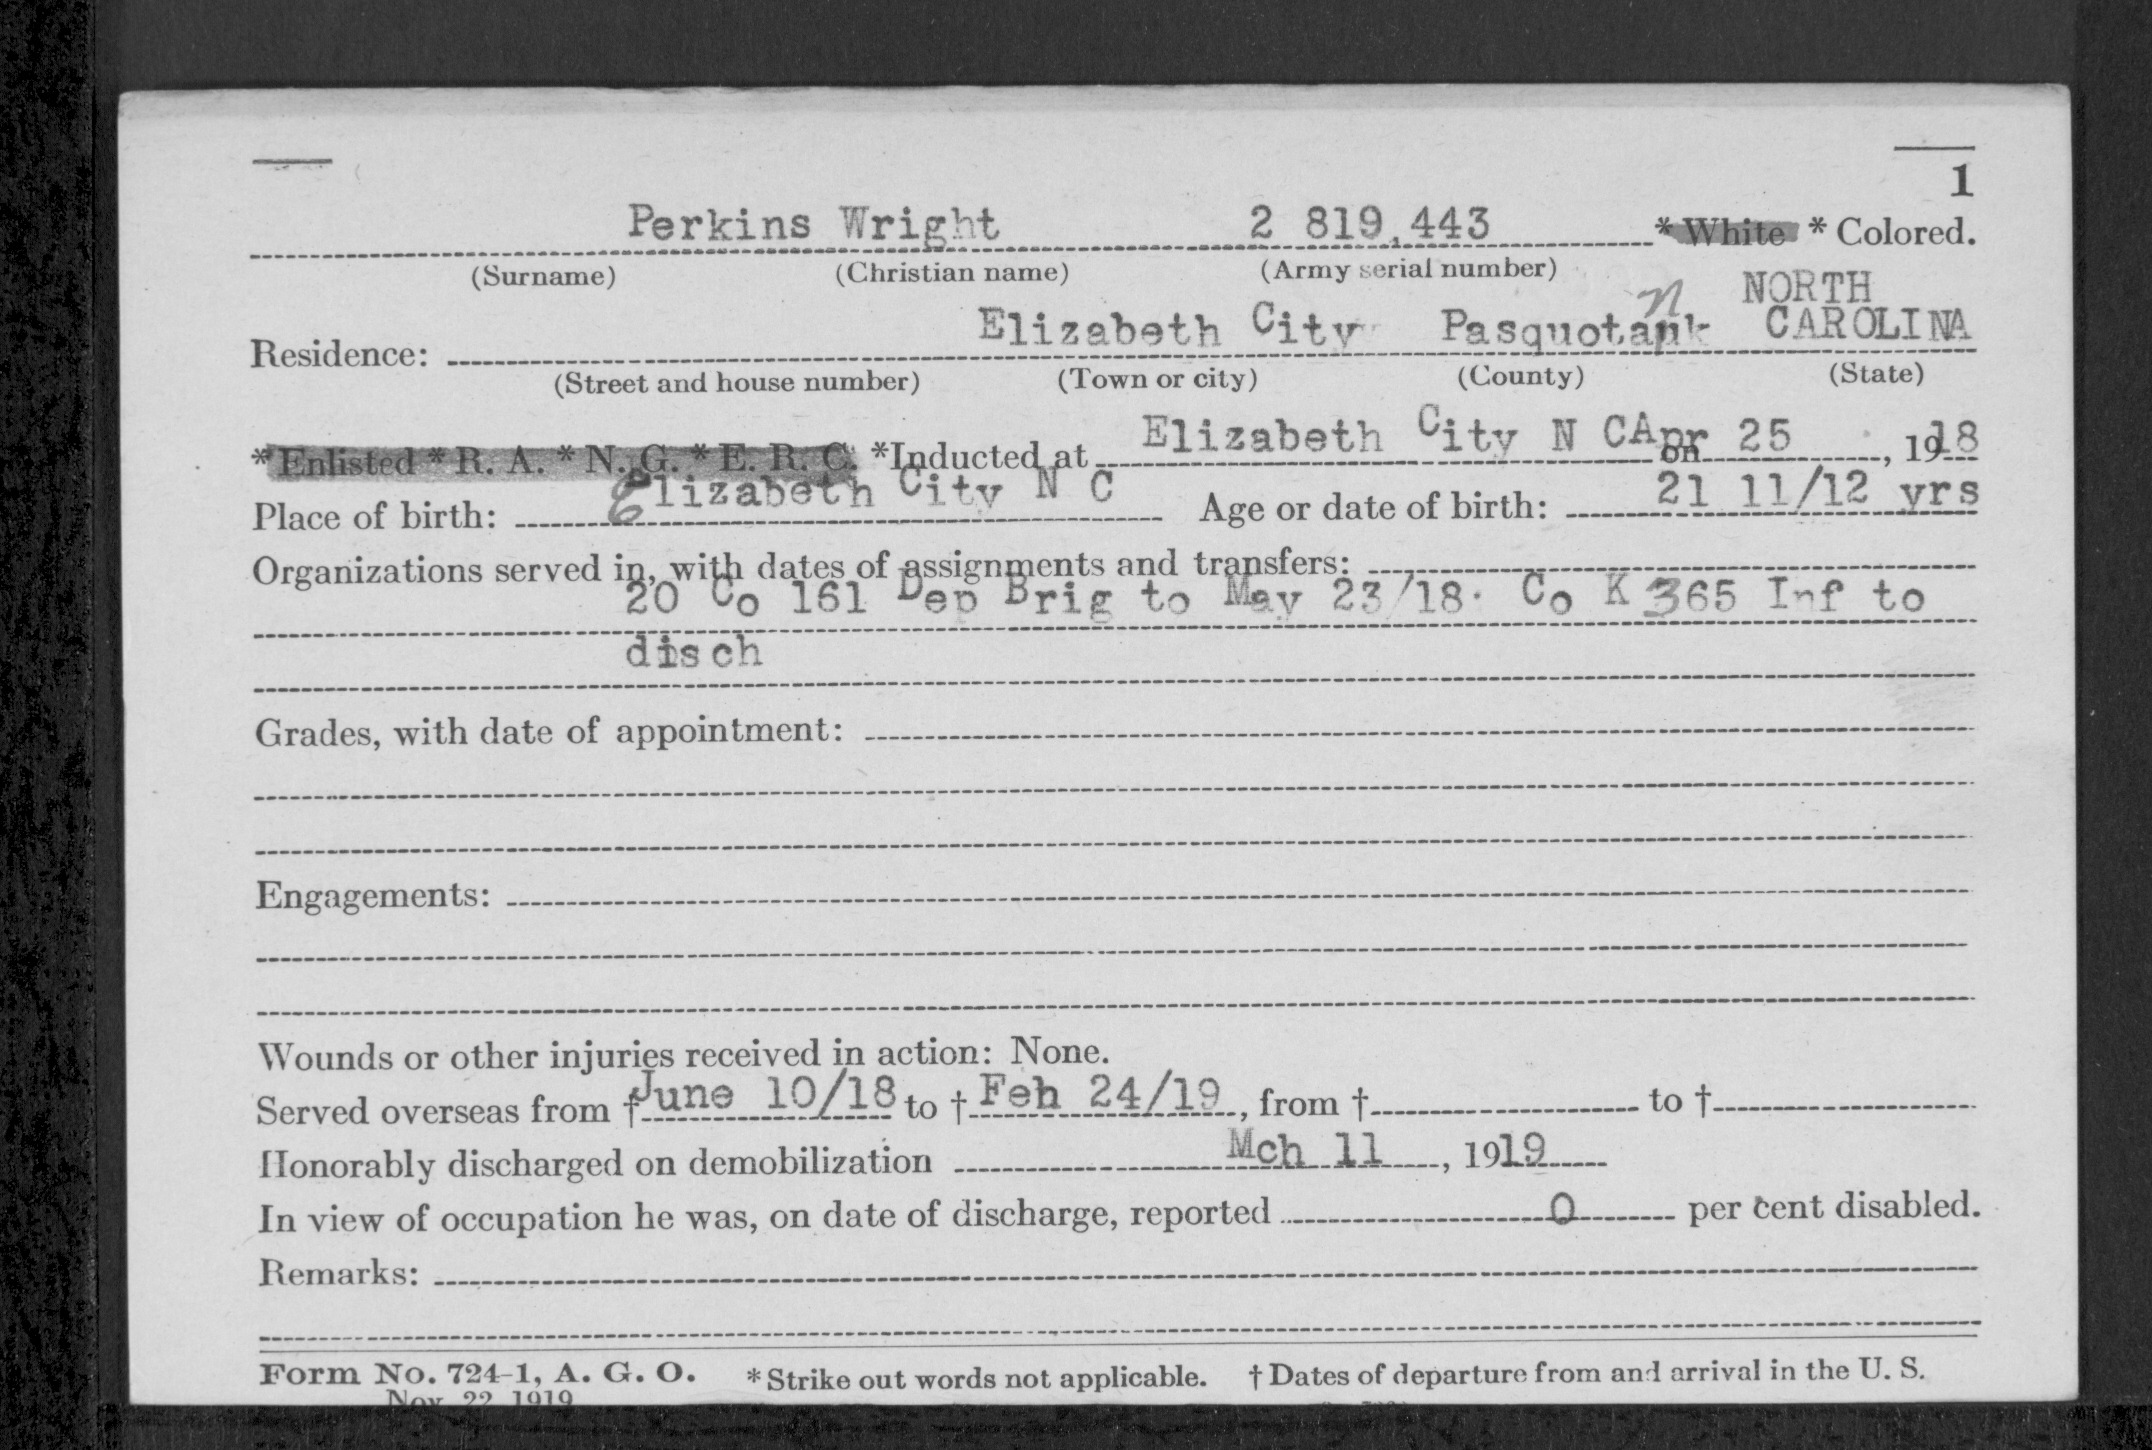 1
Perkins Wright 2 819,443 * White * Colored.
(Surname) (Christian name) (Army serial number)
NORTH
Residence: Elizabeth City Pasquotank CAROLINA
(Street and house number) (Town or city) (County) (State)
* Enlisted * R. A. * N. G. * E. R. C. *Inducted at Elizabeth City N C on Apr 25, 1918
Place of birth: Elizabeth City N C Age or date of birth: 21 11/12 yrs
Organizations served in, with dates of assignments and transfers:
20 Co 161 Dep Brig to May 23/18. Co K 365 Inf to
disch
Grades, with date of appointment:
Engagements:
Wounds or other injuries received in action: None.
Served overseas from † June 10/18 to † Feb 24/19, from † to †
Honorably discharged on demobilization Mch 11, 1919
In view of occupation he was, on date of discharge, reported 0 per cent disabled.
Remarks:
Form No. 724-1, A. G. O. * Strike out words not applicable. † Dates of departure from and arrival in the U. S.
Nov. 22, 1919